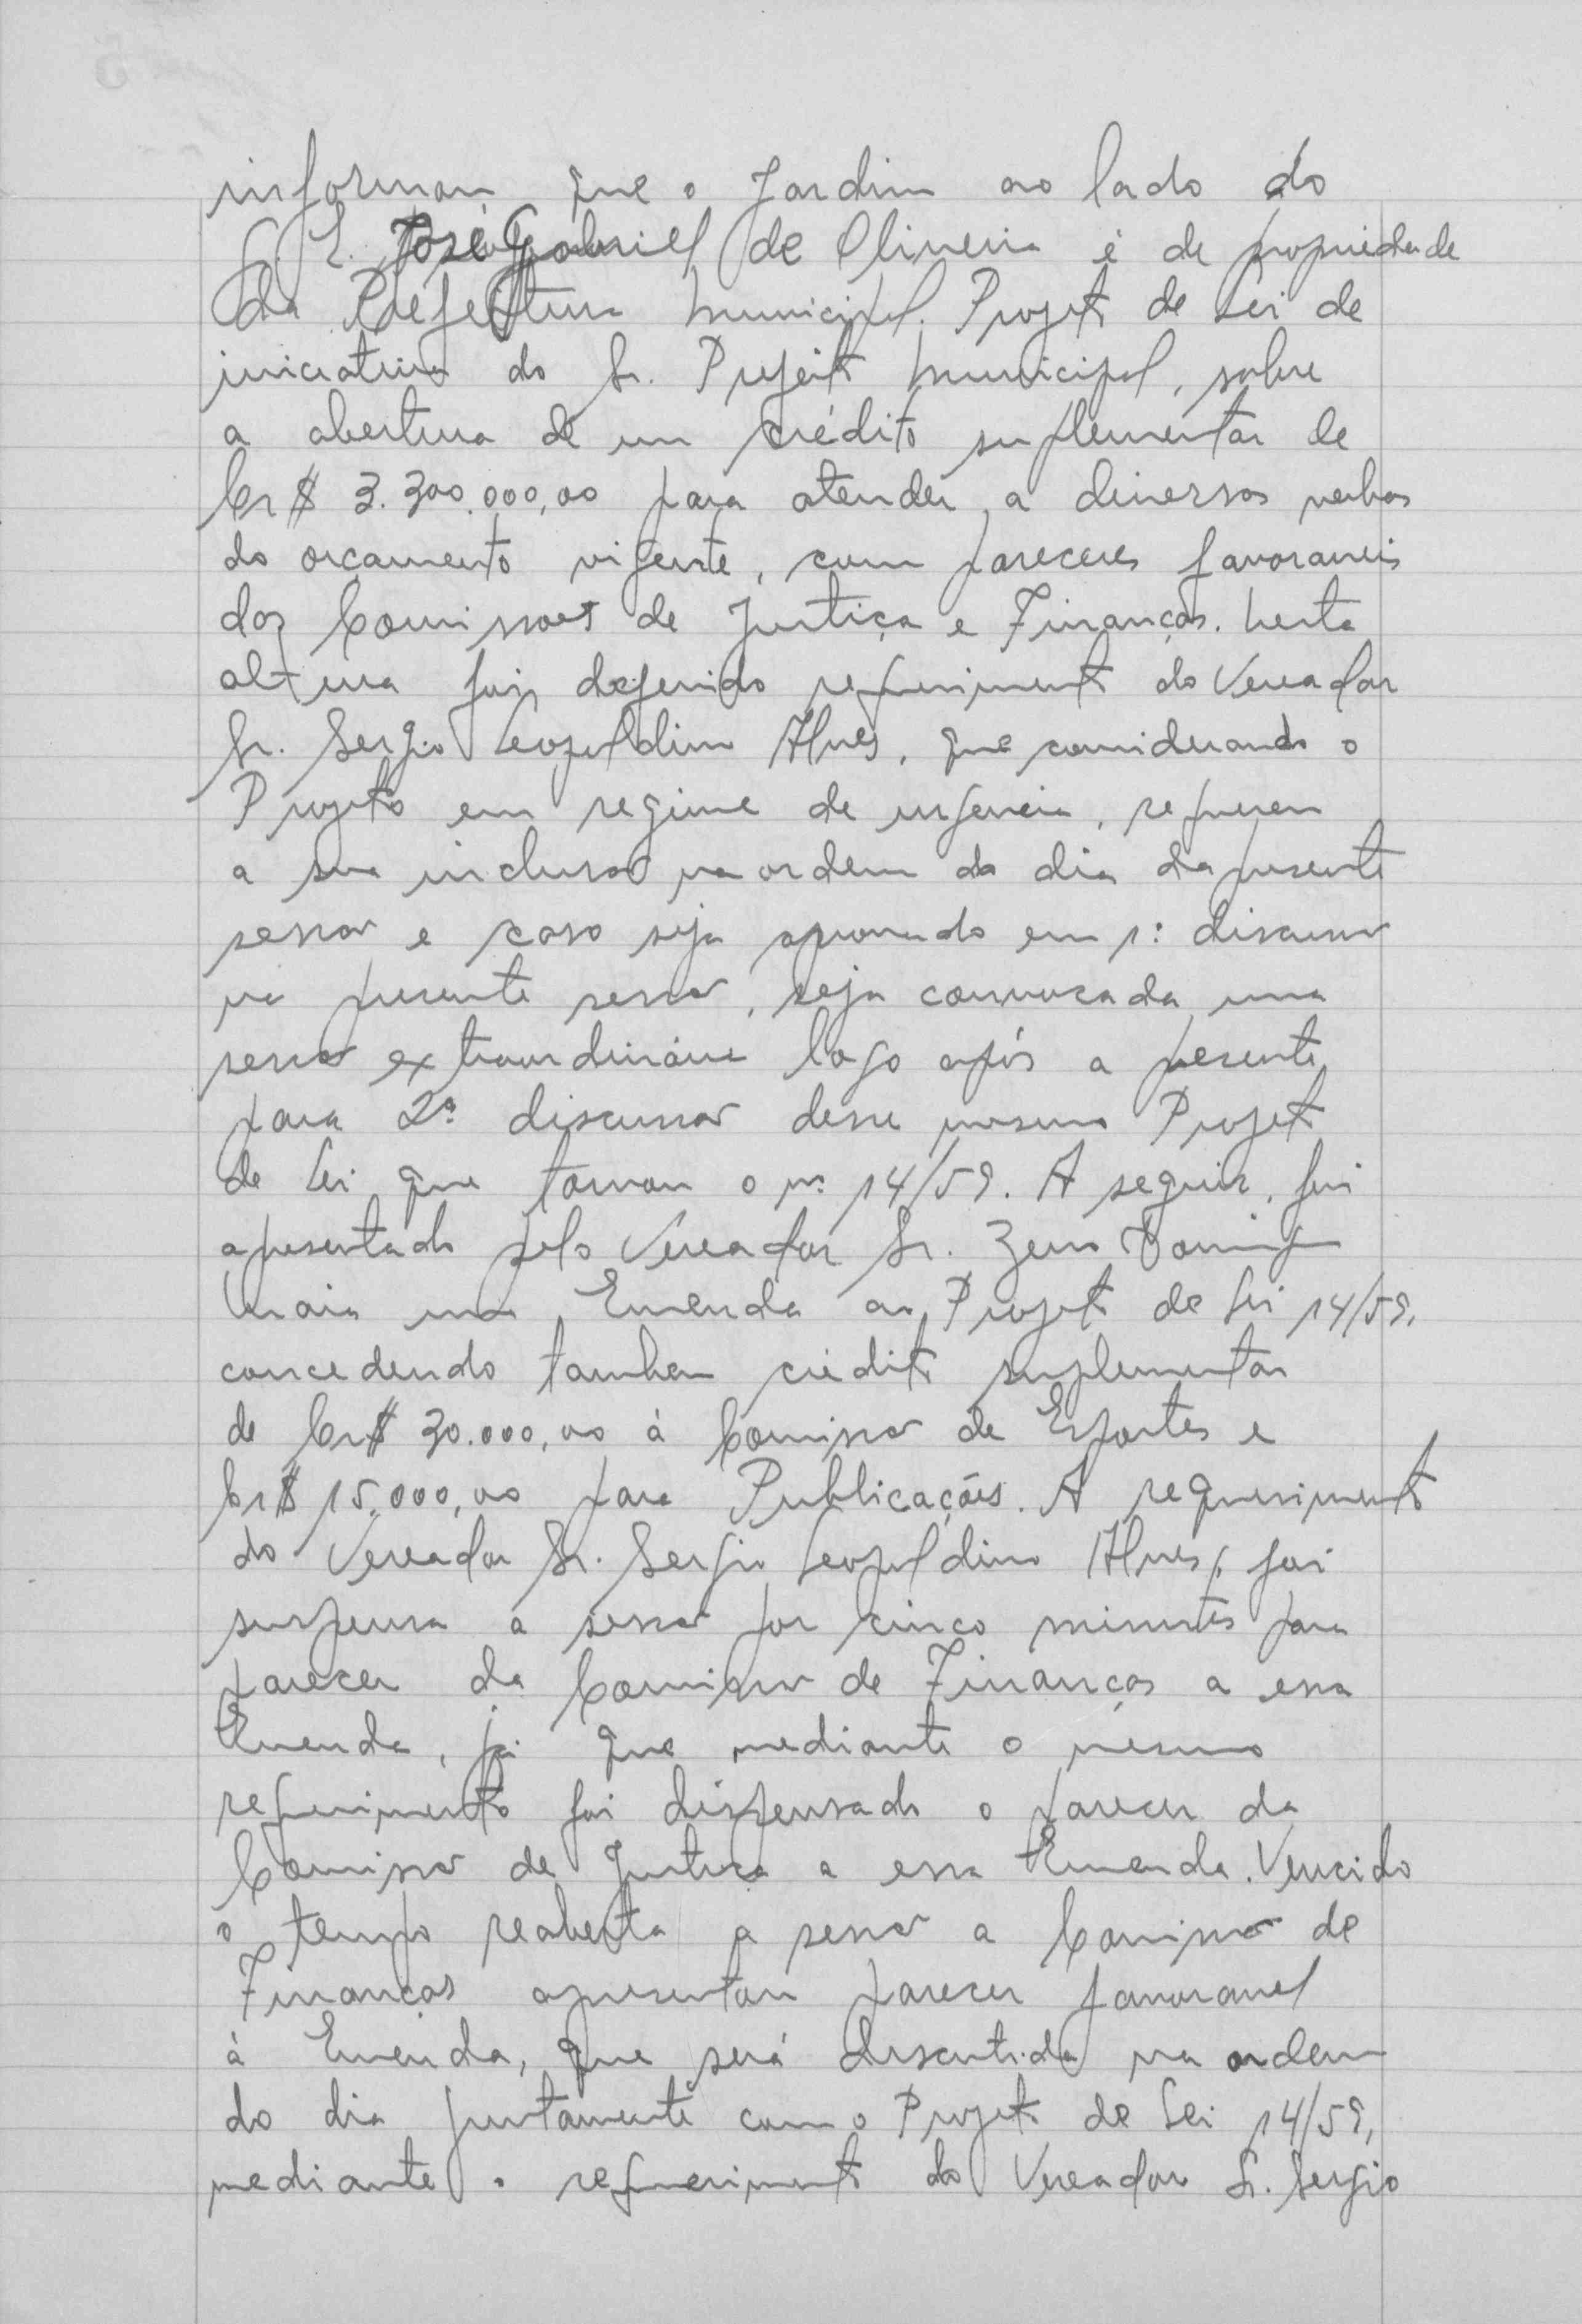 informou que o Jardim ao lado do
G. E. José Gabriel de Oliveira é de propriedade
da Prefeitura Municipal. Projeto de Lei de
iniciativa do Sr. Prefeito Municipal, sobre
a abertura de um crédito suplementar de
Cr$ 3.300.000,00 para atender a diversas verbas
do orçamento vigente, com pareceres favoraveis
das Comissões de Justiça e Finanças. Nesta
altura foi deferido requerimento do Vereador
Sr. Sergio Leopoldino Alves, que considerando o
Projeto em regime de urgencia, requereu
a sua inclusão na ordem do dia da presente
sessão e caso seja aprovado em 1ª discussão
na presente sessão, seja convocada uma
sessão extraordinária logo após a presente
para 2ª discussão desse mesmo Projeto
de Lei que tomou o nº 14/59. A seguir, foi
apresentado pelo Vereador Sr. Zeno
mais uma Emenda ao Projeto de Lei 14/59,
concedendo tambem crédito suplementar
de Cr$ 30.000,00 à Comissão de Esportes e
Cr$ 15.000,00 para Publicações. A requerimento
do Vereador Sr. Sergio Leopoldino Alves, foi
suspensa a sessão por cinco minutos para
parecer da Comissão de Finanças a essa
Emenda, já que mediante o mesmo
requerimento foi dispensado o parecer da
Comissão de Justiça a essa Emenda. Vencido
o tempo reaberta a sessão a Comissão de
Finanças apresentou parecer favoravel
à Emenda, que será discutida na ordem
do dia juntamente com o Projeto de Lei 14/59,
mediante o requerimento do Vereador Sr. Sergio